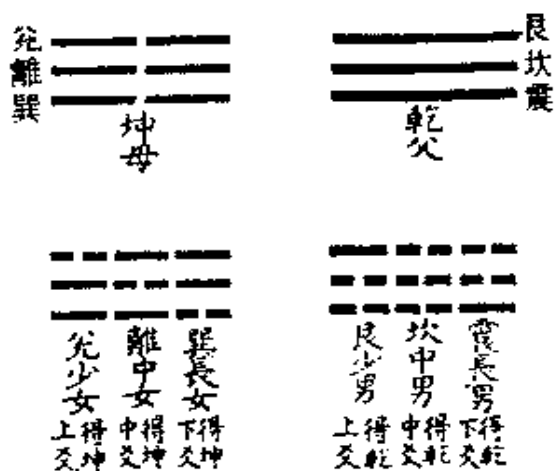 艮
坎
震
乾父
坤母
兌
離
巽
震長男
得乾
下爻
坎中男
得乾
中爻
艮少男
得乾
上爻
巽長女
得坤
下爻
離中女
得坤
中爻
兌少女
得坤
上爻